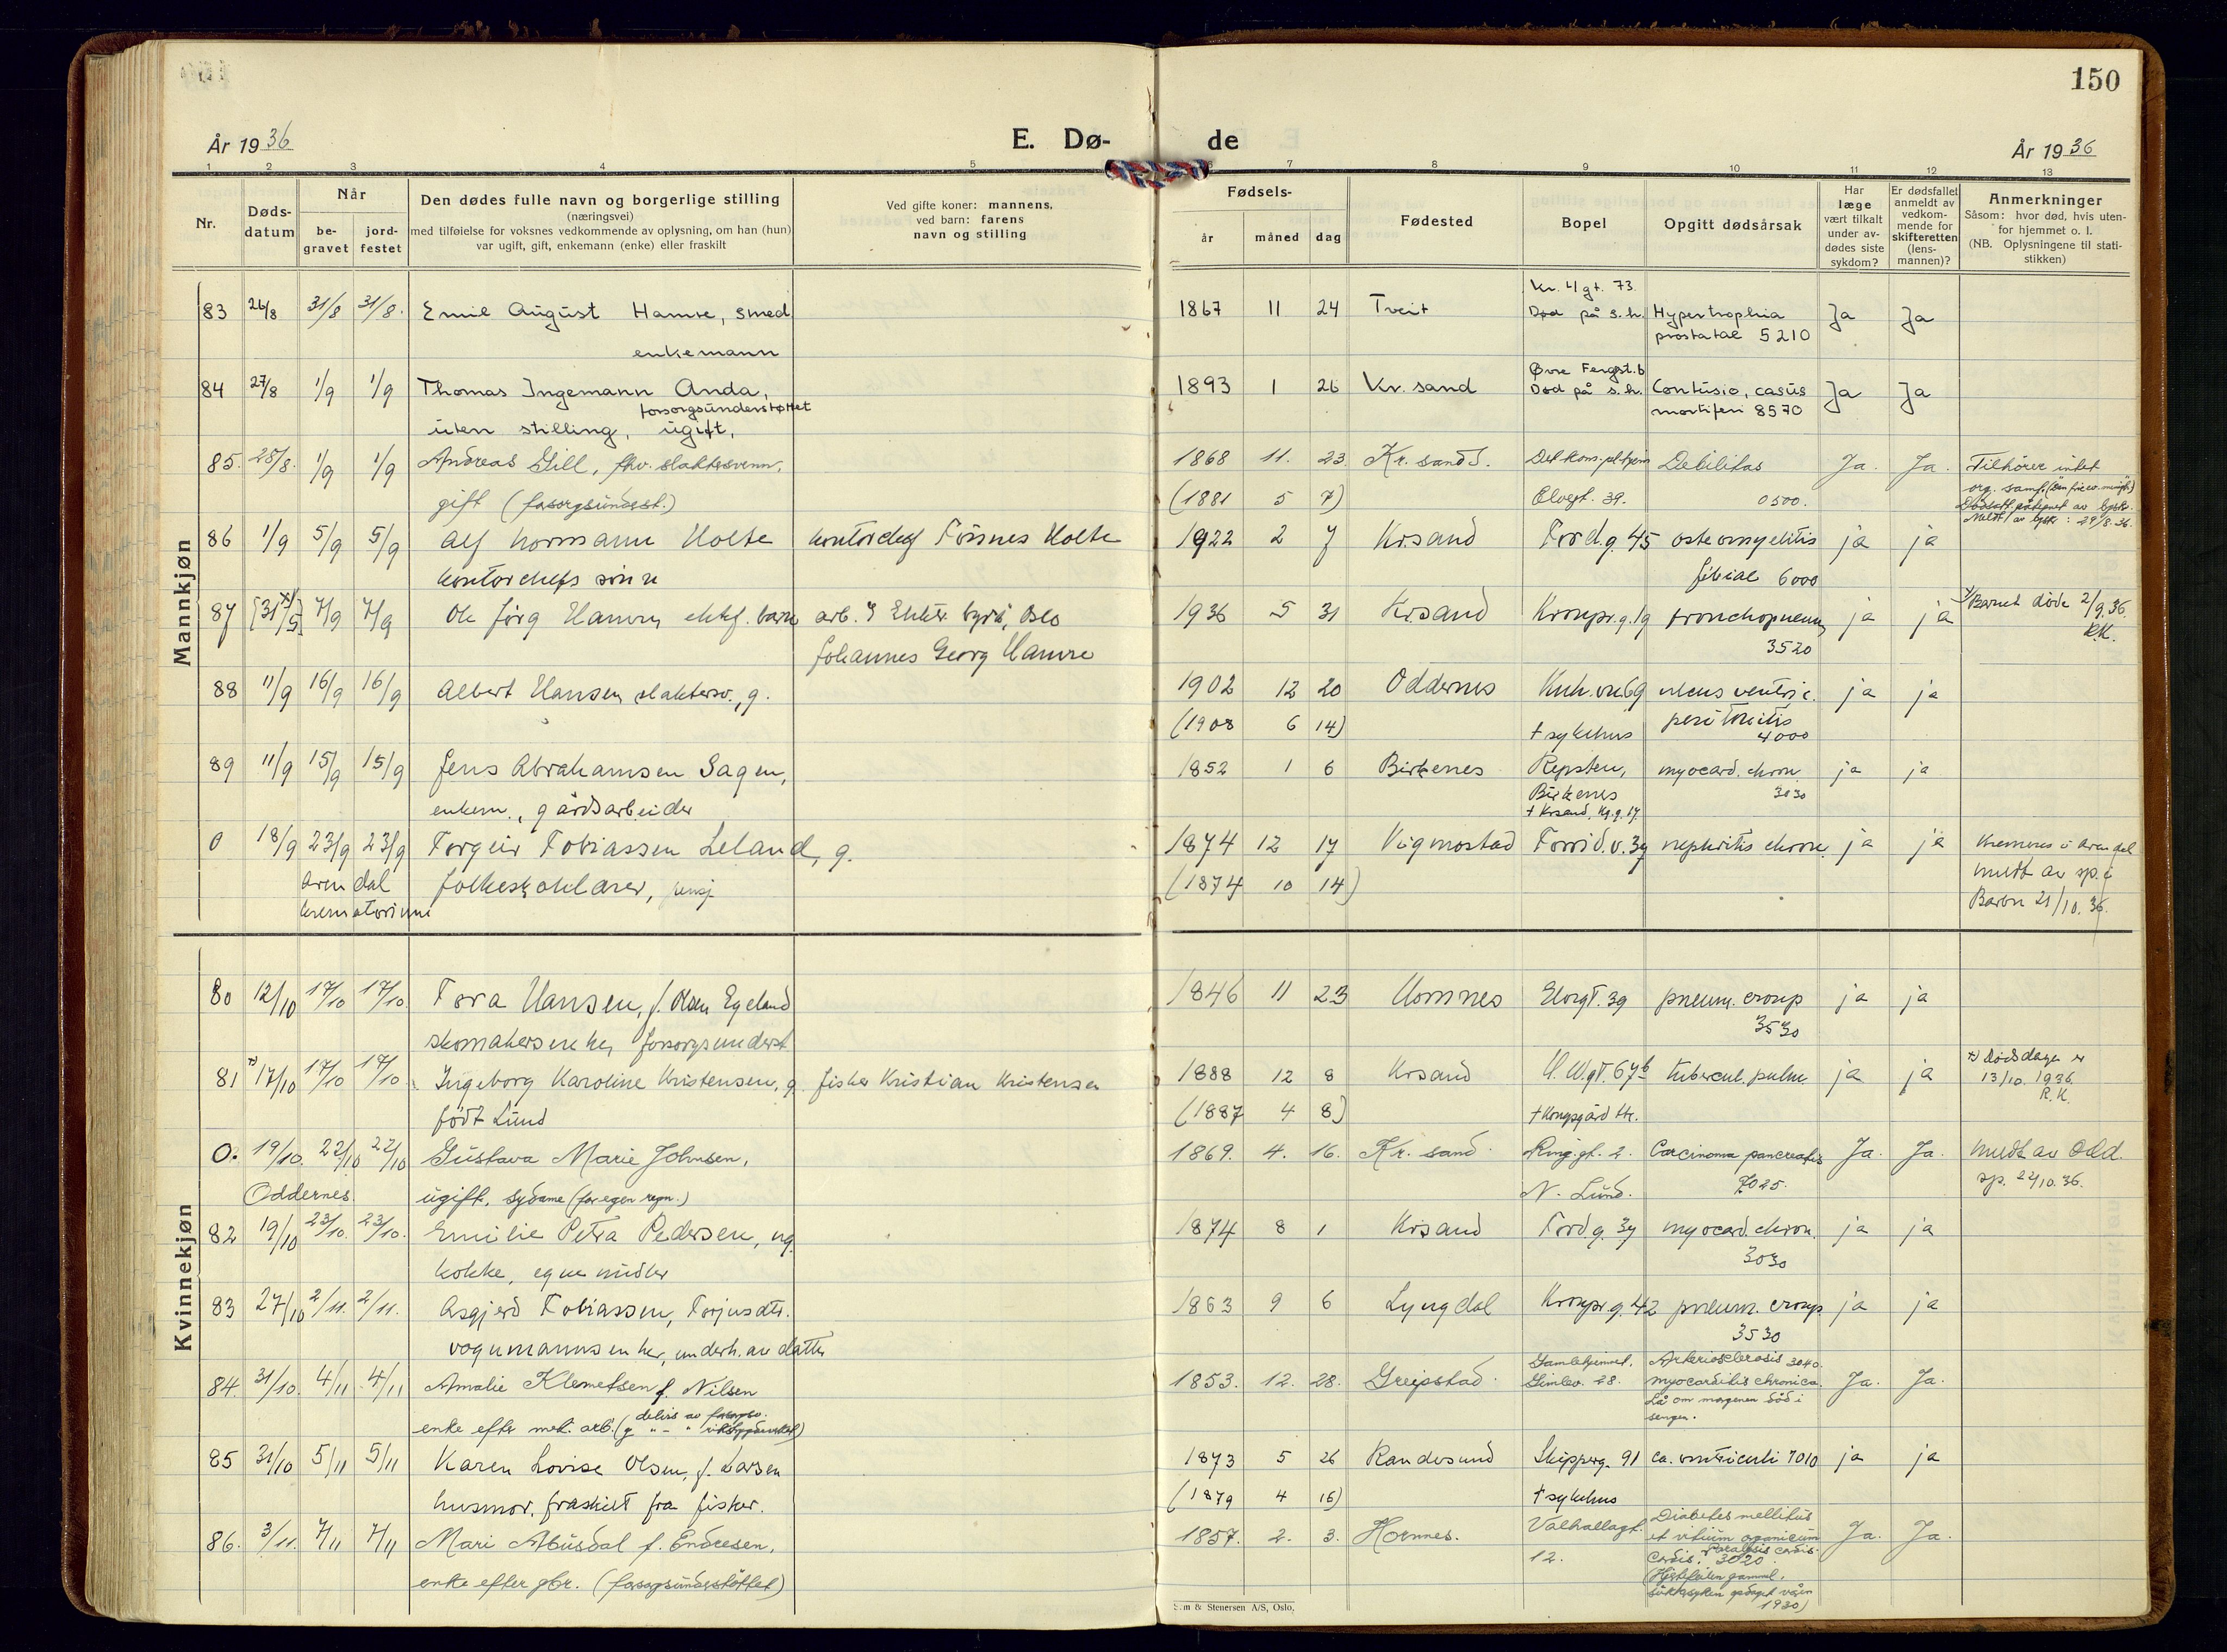 150
År 1936
E. Dø-
de
År 1936
1 2 3 4 5 6 7 8 9 10 11 12 13
Nr.
Døds-
datum
Når
be-
gravet
jord-
festet
Den dødes fulle navn og borgerlige stilling
(næringsvei)
med tilføielse for voksnes vedkommende av oplysning, om han (hun)
var ugift, gift, enkemann (enke) eller fraskilt
Ved gifte koner: mannens,
ved barn: farens
navn og stilling
Fødsels-
år måned dag
Fødested
Bopel
Opgitt dødsårsak
Har
læge
vært tilkalt
under av-
dødes siste
sykdom?
Er dødsfallet
anmeldt av
vedkom-
mende for
skifteretten
(lens-
mannen)?
Anmerkninger
Såsom: hvor død, hvis uten-
for hjemmet o. l.
(NB. Oplysningene til stati-
stikken)
Mannkjøn
Kr. 4 gt. 73
83 26/8 31/8 31/8. Emil August Hamre, smed 1867 11 24 Tveit Død på s.h. Hypertrophia Ja Ja
enkemann prostatae 5210
Øvre Fergst. 6
84 27/8 1/9 1/9 Thomas Ingemann Anda, 1893 1 26 Kr. sand Død på s.h. Contusio, casus Ja Ja
forsorgsunderstøttet mortiferi 8570
uten stilling, ugift,
85. 28/8. 1/9 1/9 Andreas Gill, fhv. slaktesvenn, 1868 11. 23. Kr. sand S. Debilitas Ja. Ja. Tilhører intet
gift (forsorgsunderst.) (1881 5 7) Elvegt. 39. 0500.
86 1/9 5/9 5/9 Alf Normann Holte kontorchef Tønnes Holte 1922 2 7 Kr.sand Tord.g. 45 osteomyelitis ja ja
kontorchefs sønn tibiae 6000
87 [31/5] 7/9 7/9 Ole Jørg Hamre, ektef. barn arb. Oslo 1936 5 31 Kr.sand Kronpr.g. 19 bronchopneum. ja ja Barnet døde 2/9.36.
Johannes Georg Hamre 3520 R.K.
88 11/9 16/9 16/9 Albert Hansen slaktersv., g. 1902 12 20 Oddernes Kuh.vn.69 ulcus ventric. ja ja
(1908 6 14) † sykehus peritonitis
4000
89 11/9 15/9 15/9 Jens Abrahamsen Sagen, 1852 1 6 Birkenes Repsten, myocard. chron. ja ja
enkem., gårdsarbeider Birkenes 3030
† Krsand, Kg.g. 17.
0 18/9 23/9 23/9 Torgeir Tobiassen Leland, g. 1874 12 17 Vigmostad Torrid.v. 37 nephritis chron. ja ja Kremeres i Arendal
Arendal folkeskolelærer, pensj. (1874 10 14) meldt av sp. i
krematorium Barbu 21/10.36.
Kvinnekjøn
80 12/10 17/10 17/10 Tora Hansen, f. Olsen Egeland 1846 11 23 Hornnes Elvegt. 39 pneum. croup ja ja
skomakersenke, forsorgsunderst 3530
81 x) 17/10 17/10 17/10. Ingeborg Karoline Kristensen, g. fisker Kristian Kristensen 1888 12 8 Krsand H.W.gt. 67b tubercul. pulm ja ja x) Dødsdagen er
født Lund (1887 4 8) † Kongsgård 13/10. 1936.
R.K.
0. 19/10. 22/10 22/10 Gustava Marie Johnsen, 1869. 4. 16. Kr. sand Ring.gt. 2. Carcinoma pancreatis Ja. Ja. meldt av Odd.
Oddernes. ugift, sydame (for egen regn.) N. Lund. 7025. sp. 22/10.36.
82 19/10 23/10. 23/10. Emilie Petra Pedersen, ug. 1874 8 1 Krsand Tord.g. 37 myocard. chron. ja ja
kokke, egne midler 3030
83 27/10 2/11. 2/11. Asgjerd Tobiassen, Torjusdtr. 1863 9 6 Lyngdal Kronpr.g. 42 pneum. croup. ja ja
vognmannsenke, underh. av datter 3530
84. 31/10. 4/11 4/11 Amalie Klemetsen f. Nilsen 1853. 12. 28. Greipstad Gamlehjemmet, Arteriosclerosis 3040. Ja. Ja.
enke efter met. arb. Gimlev. 28. myocarditis chronica.
Lå om morgenen død i
sengen.
85 31/10 5/11 5/11 Karen Lovise Olsen, f. Larsen 1873 5 26 Randesund Skipperg. 91 ca. ventriculi 7010 ja ja
husmor, fraskilt fra fisker. (1879 4 16) † sykehus
86. 3/11. 7/11 7/11 Mari Abusdal f. Endresen, 1857. 2. 3. Hornnes. Valhallagt. Diabetes mellitus Ja. Ja.
enke efter gbr. (forsorgsunderstøttet) 12. et vitium organicum
cordis. Paralysis cordis. 3020
(Hjertefeilen gammel,
1930)
& Stenersen A/S, Oslo.